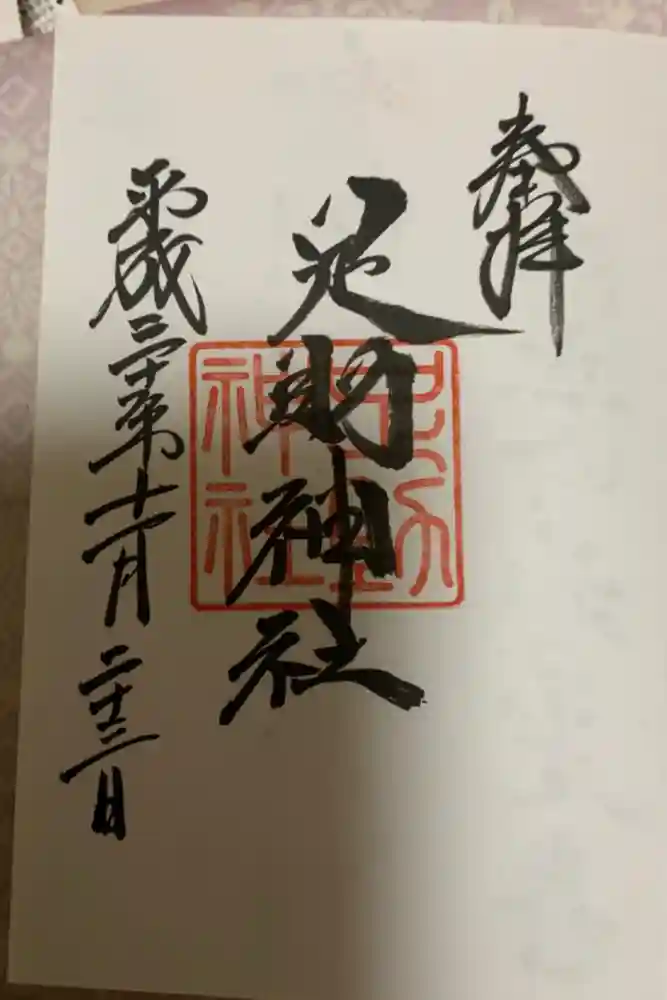 奉拝
足助神社
足助
神社
平成三十年十一月二十三日